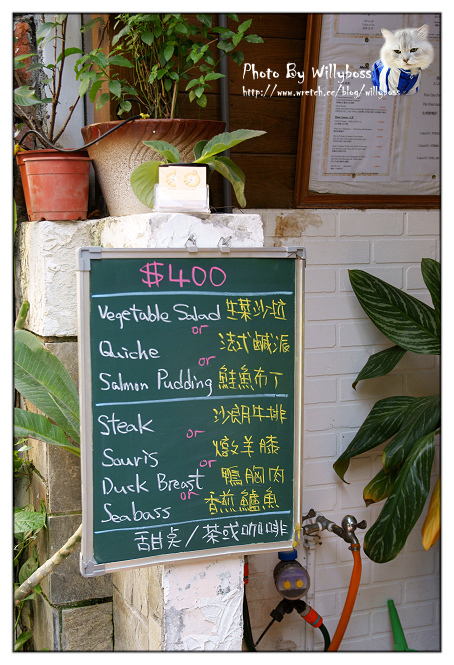 Photo By Willyboss
http://www.wretch.cc/blog/willyboss
$400
Vegetable Salad 生菜沙拉
or
Quiche 法式鹹派
or
Salmon Pudding 鮭魚布丁
Steak 沙朗牛排
or
Souris 燉羊膝
or
Duck Breast 鴨胸肉
or
Seabass 香煎鱸魚
甜桌/茶或咖啡